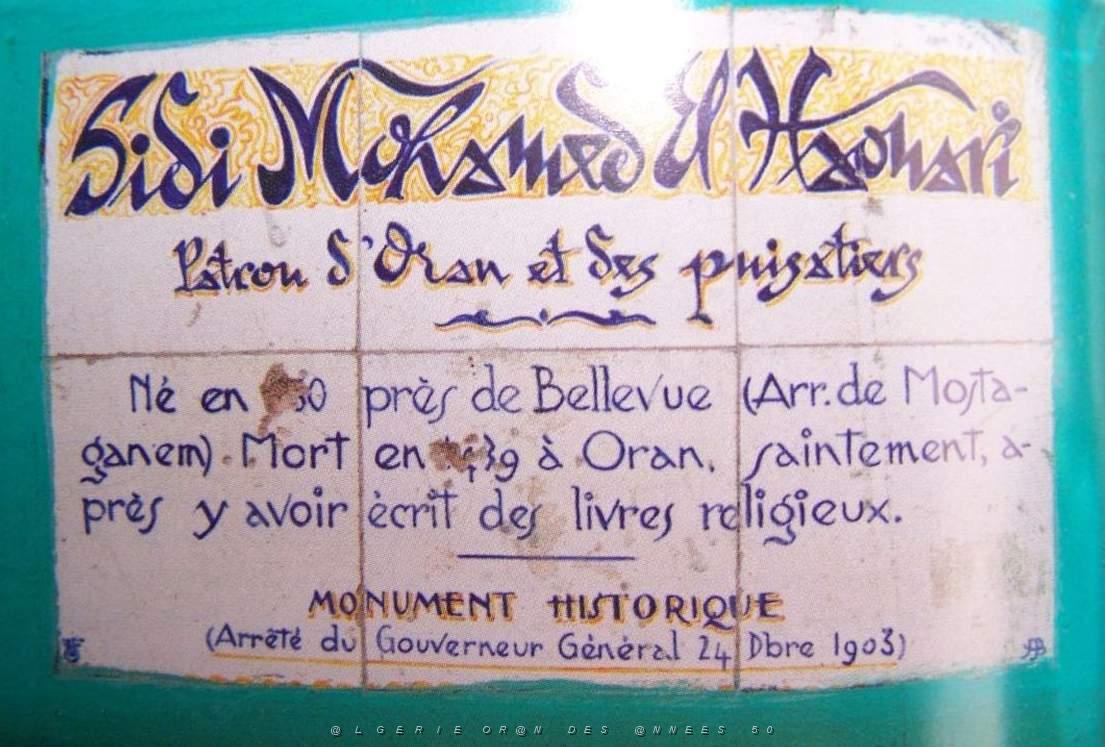 Sidi Mohamed El Haouari
Patron d'Oran et des puisatiers
Né en près de Bellevue (Arr. de Mosta-
ganem). Mort en à Oran, saintement, a-
près y avoir écrit des livres religieux.
MONUMENT HISTORIQUE
(Arrêté du Gouverneur Général 24 Dbre 1903)
@LGERIE OR@N DES @NNEES 50